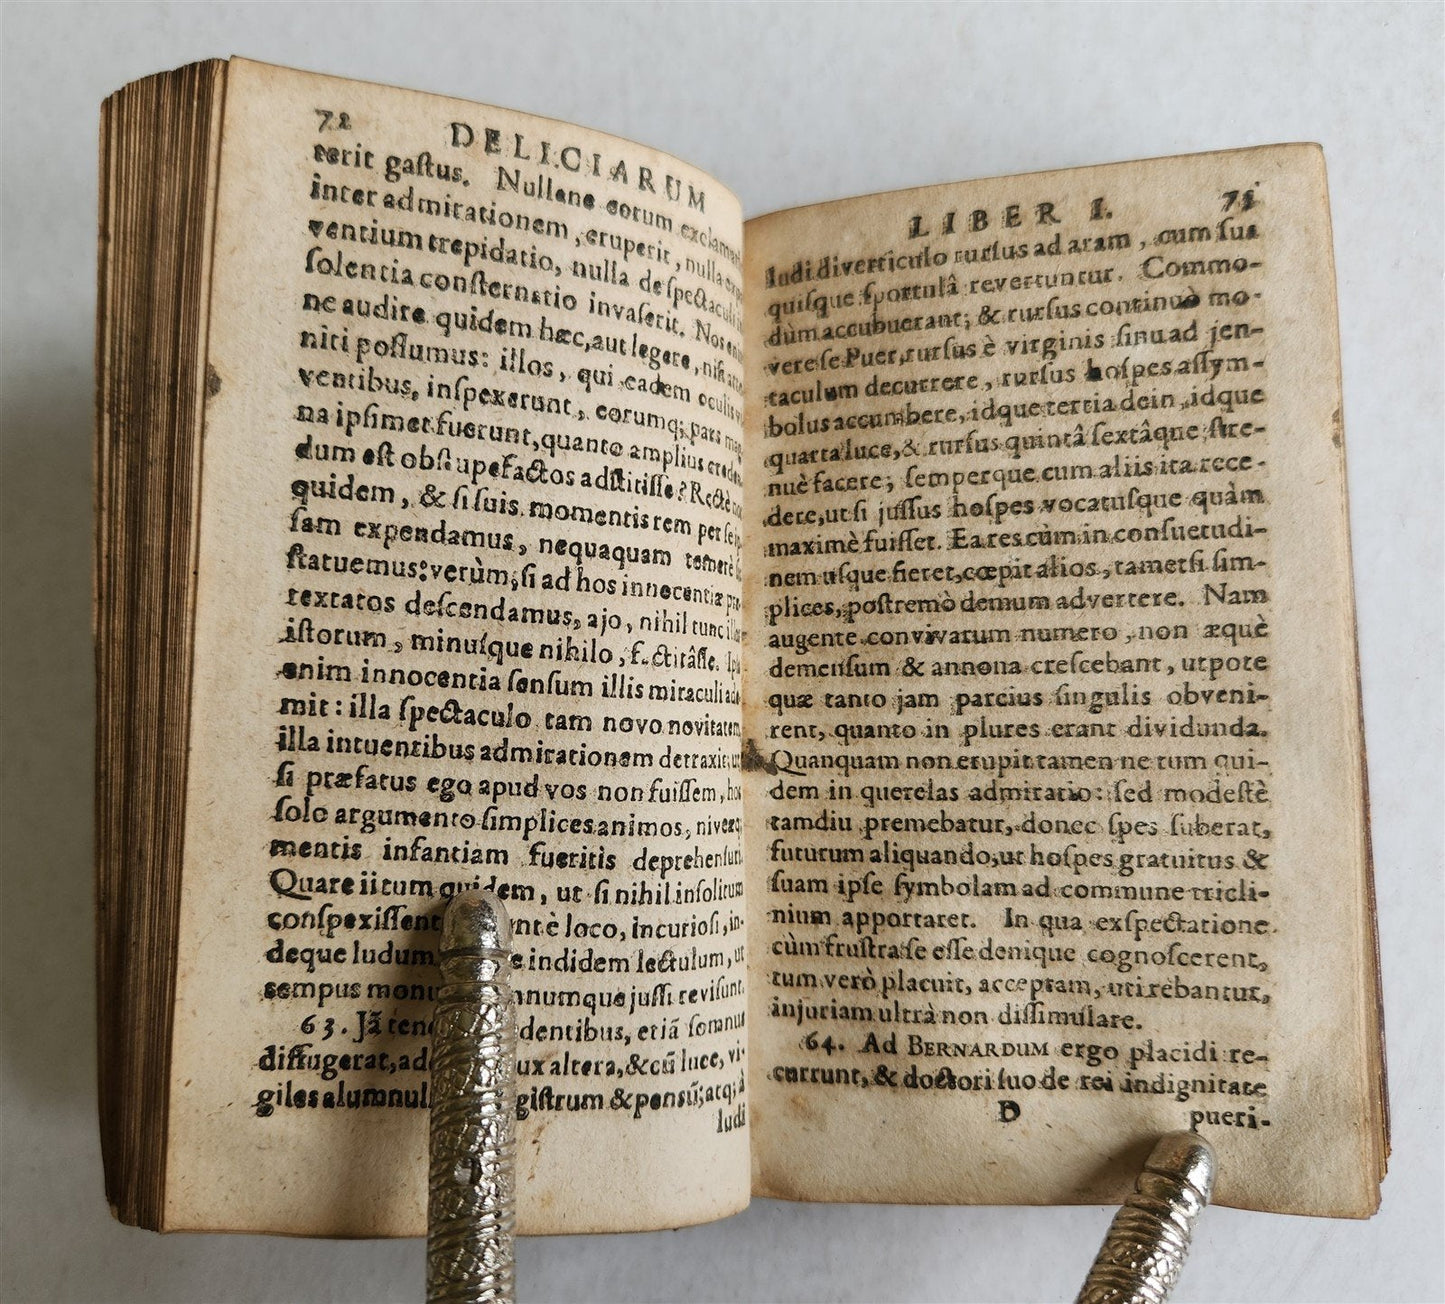 72 DELICIARUM
terit gaſtus. Nullane eorum exclamat
inter admirationem, eruperit, nulla
ventium trepidatio, nulla de ſpectaculi
ſolentia conſternatio invaſerit. Nos
ne audire quidem hæc, aut legere, niſi
niti poſſumus: illos, qui eadem oculis
ventibus, inſpexerunt, eorumq; pars
na ipſimet fuerunt, quanto amplius
dum eſt obſtupefactos adſtitiſſe? Rectè
quidem, & ſi ſuis momentis rem per ſe
ſam expendamus, nequaquam temerè
ſtatuemus: verùm, ſi ad hos innocentiæ
textatos deſcendamus, ajo, nihil tunc
iſtorum, minuſque nihilo, f.ctitâſſe.
enim innocentia ſenſum illis miraculi
mit: illa ſpectaculo tam novo novitatem
illa intuentibus admirationem detraxit, ut
ſi præfatus ego apud vos non fuiſſem, hoc
ſolo argumento ſimplices animos, niveæq;
mentis infantiam fueritis deprehenſuri.
Quare ii tum quidem, ut ſi nihil inſolitum
conſpexiſſent loco, incurioſi, in-
deque ludum, e indidem lectulum, ut
sempus mon nnumque juſſi reviſunt.
63. Jã ten dentibus, etiã ſomnus
diffugerat, ad ux altera, & cū luce, vi-
giles alumnuli giſtrum & penſū; atq; à
ludi
LIBER I. 73
ludi diverticulo rurſus ad aram, cum ſua
quiſque ſportulâ revertuntur. Commo-
dùm accubuerant; & rurſus continuò mo-
vere ſe Puer, rurſus è virginis ſinu ad jen-
taculum decurrere, rurſus hoſpes aſſym-
bolus accumbere, idque tertia dein, idque
quarta luce, & rurſus quintâ ſextâque ſtre-
nuè facere; ſemperque cum aliis ita rece-
dere, ut ſi juſſus hoſpes vocatuſque quàm
maximè fuiſſet. Ea res cùm in conſuetudi-
nem uſque fieret, cœpit alios, tametſi ſim-
plices, poſtremò demum advertere. Nam
augente convivarum numero, non æquè
demenſum & annona creſcebant, utpote
quæ tanto jam parcius ſingulis obveni-
rent, quanto in plures erant dividunda.
Quanquam non erupit tamen ne tum qui-
dem in querelas admiratio: ſed modeſtè
tamdiu premebatur, donec ſpes ſuberat,
futurum aliquando, ut hoſpes gratuitus &
ſuam ipſe ſymbolam ad commune tricli-
nium apportaret. In qua exſpectatione
cùm fruſtra ſe eſſe denique cognoſcerent,
tum verò placuit, acceptam, uti rebantur,
injuriam ultrà non diſſimulare.
64. Ad BERNARDUM ergo placidi re-
currunt, & doctori ſuo de rei indignitate
D pueri-